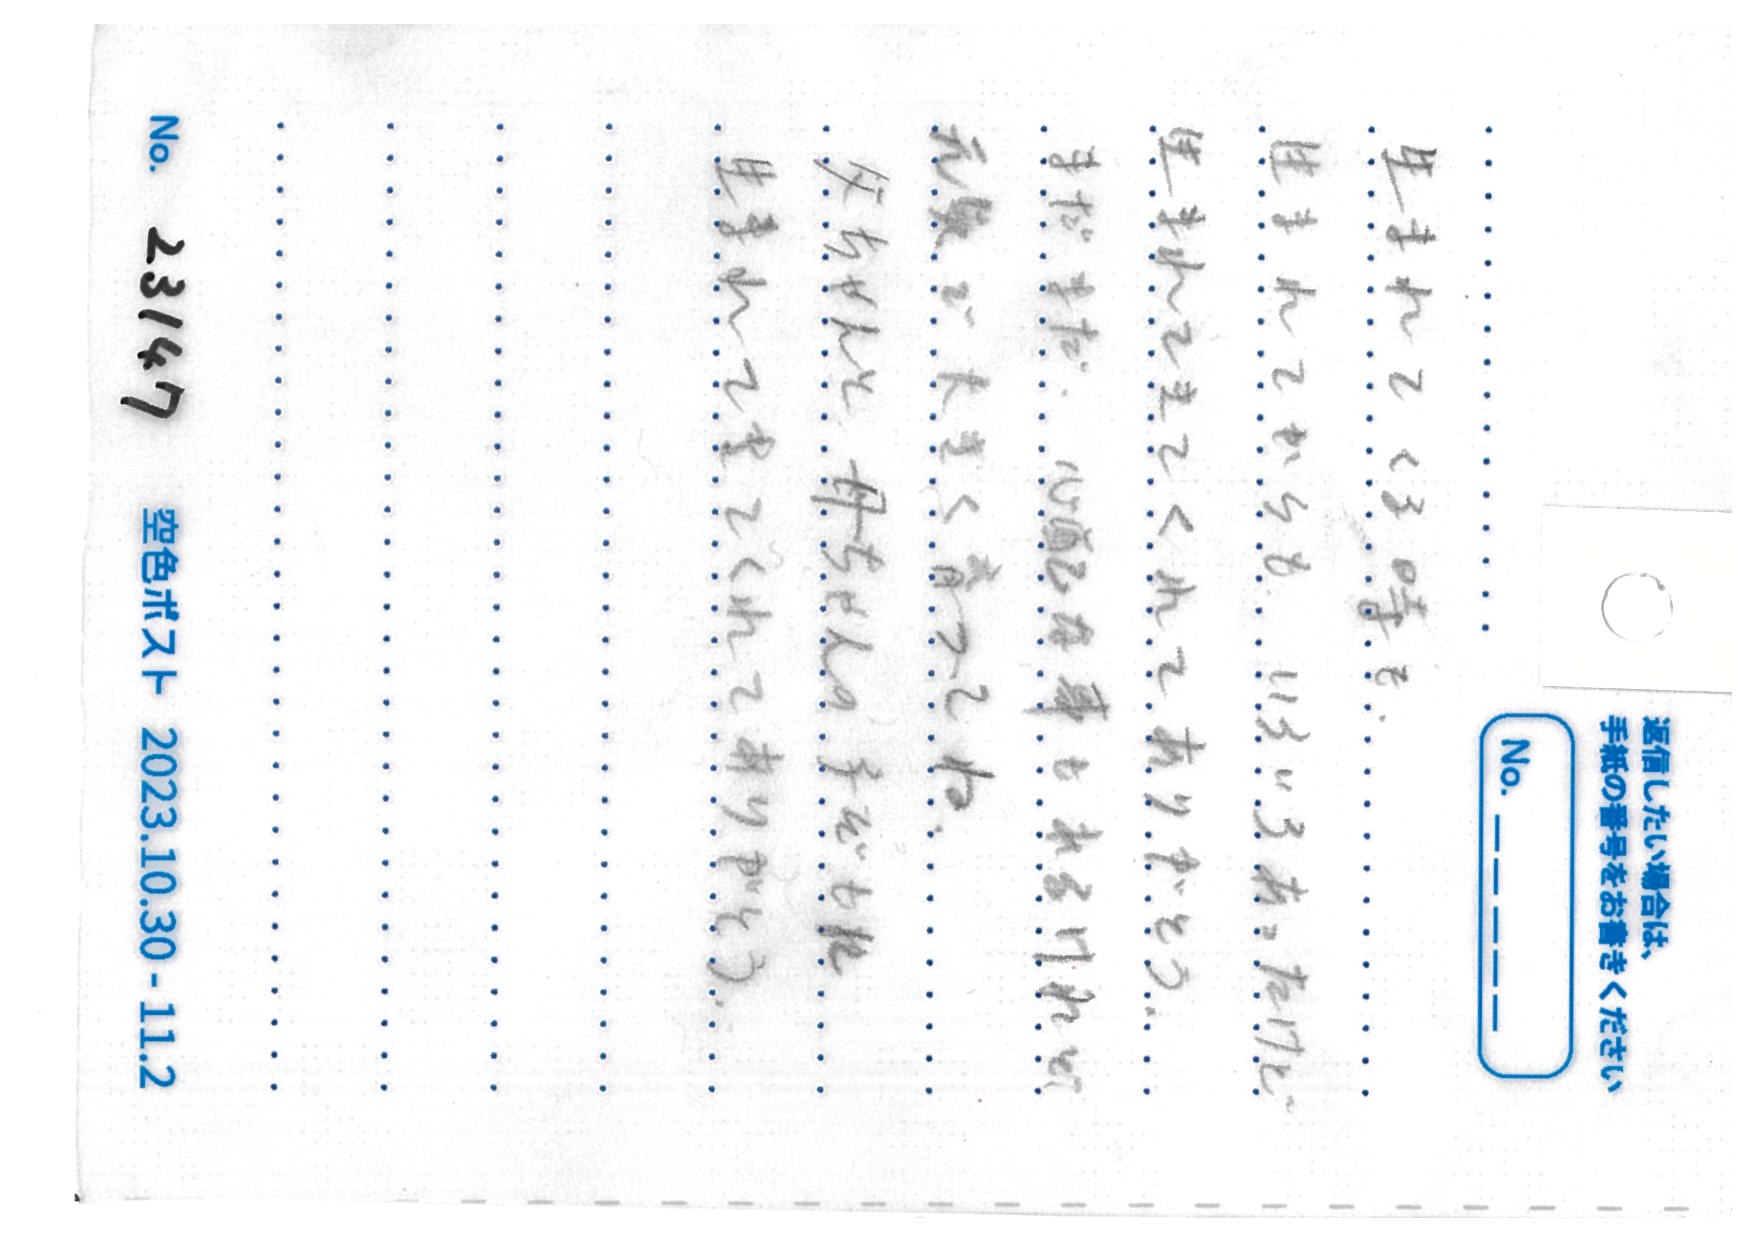 返信したい場合は、
手紙の番号をお書きください
No. _ _ _ _ _
生まれてくる時も、
生まれてからも、いろいろあったけど
生まれてきてくれてありがとう。
まだまだ、心配な事もあるけれど、
元気で大きく育ってね。
父ちゃんと、母ちゃんの子どもに
生まれてきてくれてありがとう。
No. 23147 空色ポスト 2023.10.30 - 11.2